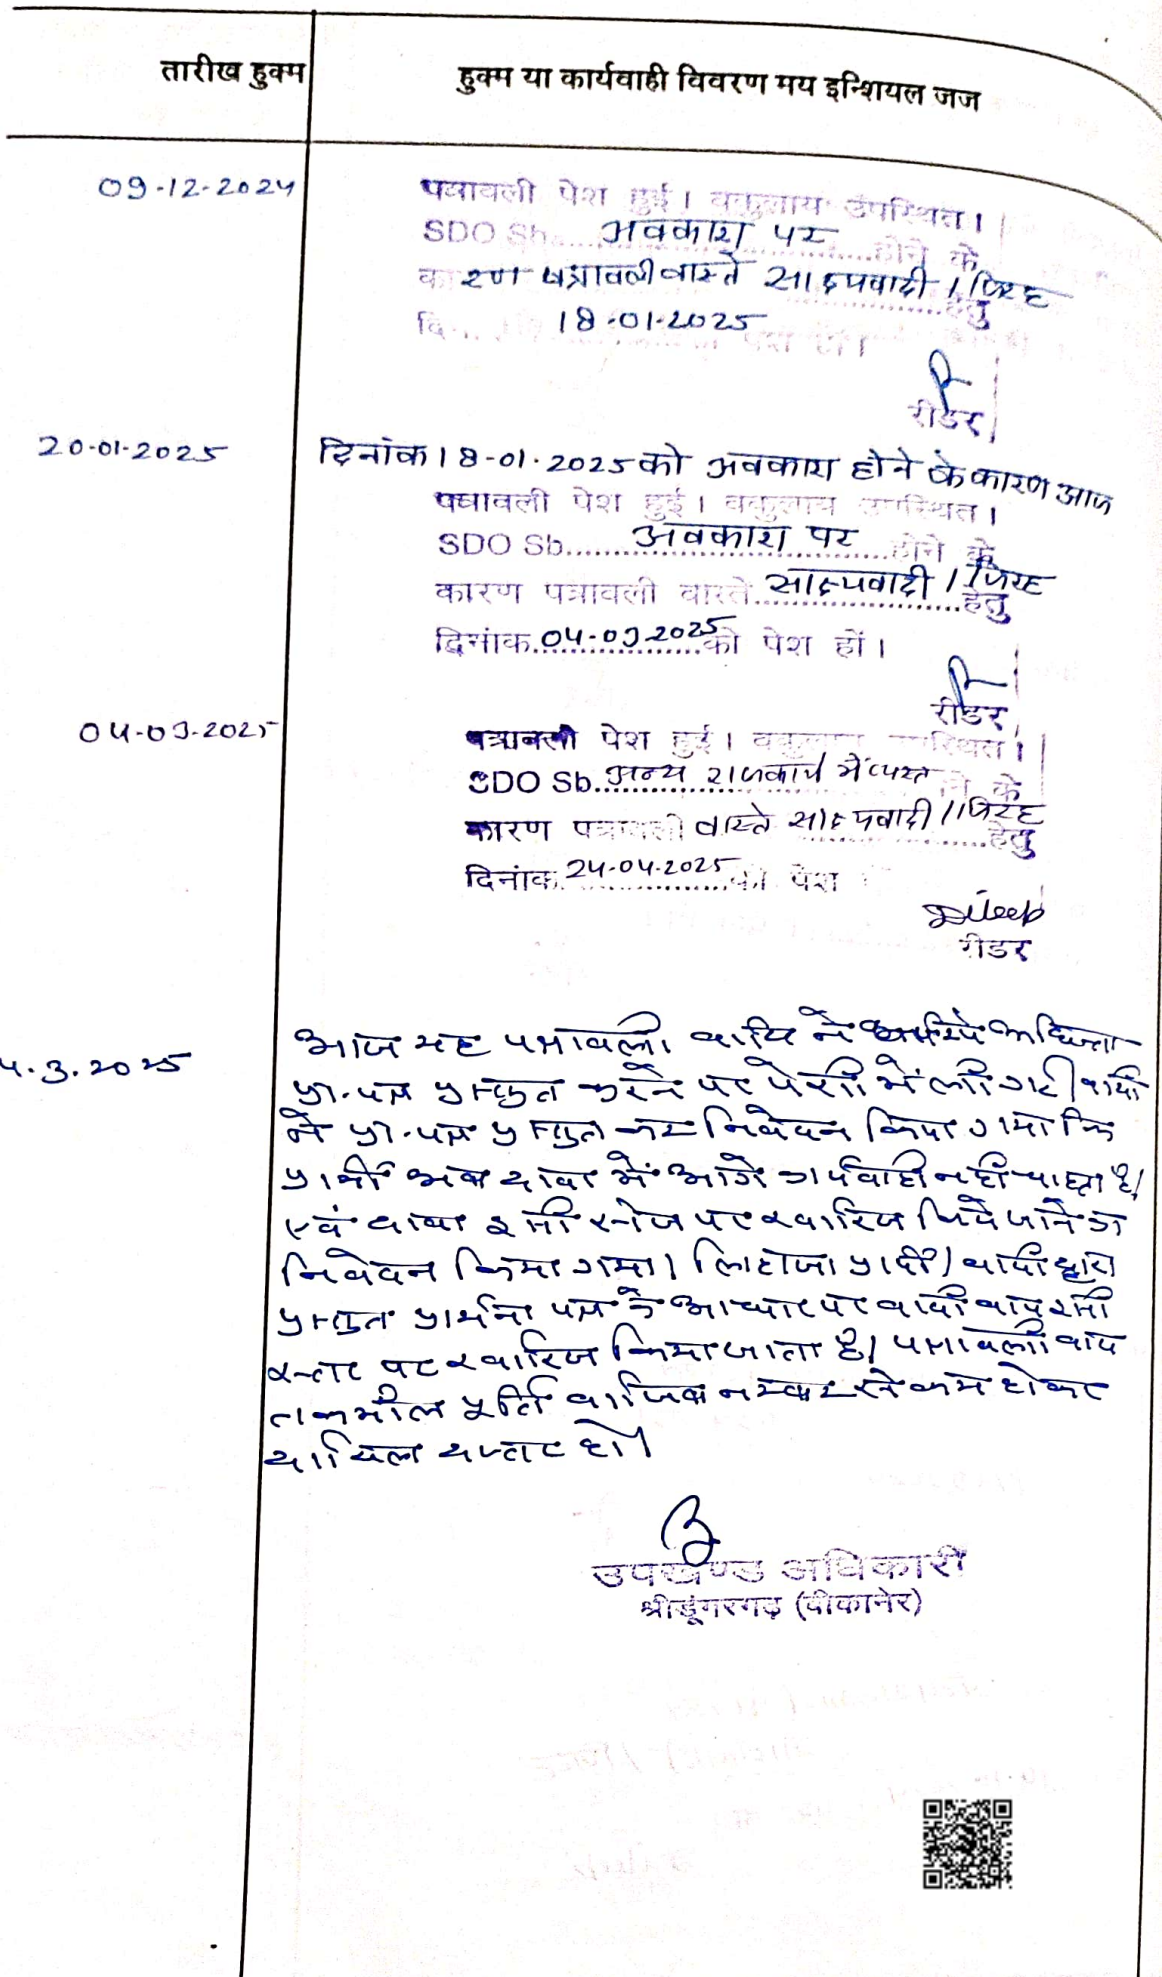 तारीख हुक्म
हुक्म या कार्यवाही विवरण मय इन्शियल जज
09-12-2024
पत्रावली पेश हुई। वकुलाय उपस्थित।
SDO Sb... अवकाश पर ...होने के
कारण पत्रावली वास्ते साक्ष्यवादी / जिरह हेतु
दि... 18-01-2025
रीडर
20-01-2025
दिनांक 18-01-2025 को अवकाश होने के कारण आज
पत्रावली पेश हुई। वकुलाय उपस्थित।
SDO Sb... अवकाश पर ...होने के
कारण पत्रावली वास्ते साक्ष्यवादी / जिरह हेतु
दिनांक 04-03-2025 को पेश हों।
रीडर
04-03-2025
पत्रावली पेश हुई। वकुलाय उपस्थित।
SDO Sb. अन्य राजकार्य में व्यस्त होने के
कारण पत्रावली वास्ते साक्ष्यवादी / जिरह हेतु
दिनांक 24-04-2025 को पेश
Dileep
रीडर
4.3.2025
आज यह पत्रावली वादी ने जरिये अधिवक्ता
प्रा.पत्र प्रस्तुत करने पर पेशी में ली गई। वादी
ने प्रा.पत्र प्रस्तुत कर निवेदन किया गया कि
प्रार्थी अब दावा में आगे कार्यवाही नहीं चाहता है।
एवं दावा इसी स्टेज पर खारिज किये जाने का
निवेदन किया गया। लिहाजा प्रार्थी/वादी द्वारा
प्रस्तुत प्रार्थना पत्र के आधार पर वादी वाद इसी
स्तर पर खारिज किया जाता है। पत्रावली बाद
तकमील पूर्ति वाजिब नम्बर से कम होकर
दाखिल दफ्तर हो।
उपखण्ड अधिकारी
श्रीडूंगरगढ़ (बीकानेर)